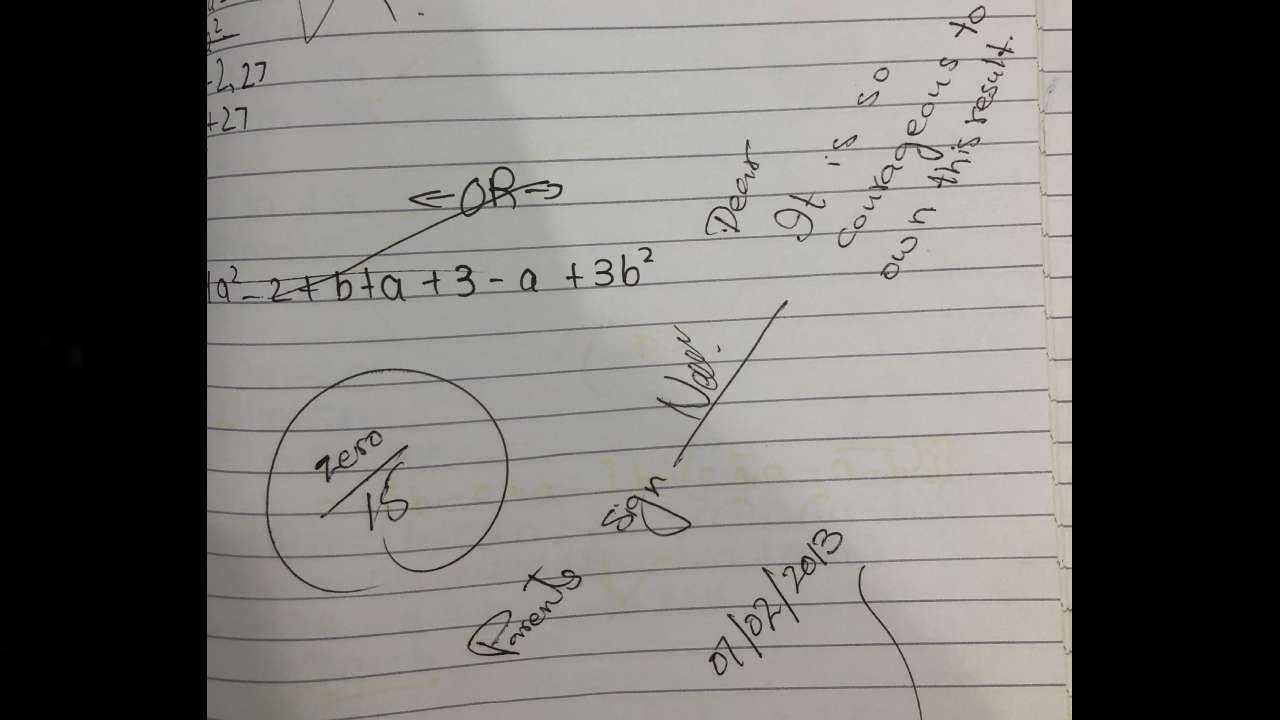 -2,27
+27
OR
a² - 2 + b + a + 3 - a + 3b²
Dear
It is so
courageous to
own this result.
zero
15
Parents Sign
07/02/2013